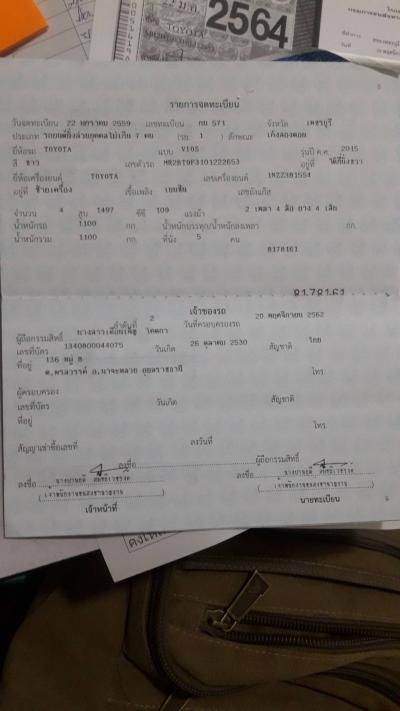 2564
TOYOTA
รายการจดทะเบียน
วันจดทะเบียน 22 มกราคม 2559 เลขทะเบียน กน 571 จังหวัด เพชรบุรี
ประเภท รถยนต์นั่งส่วนบุคคลไม่เกิน 7 คน (รย. 1 ) ลักษณะ เก๋งสองตอน
ยี่ห้อรถ TOYOTA แบบ VIOS รุ่นปี ค.ศ. 2015
สี ขาว เลขตัวรถ MR2BT9F3101222653 อยู่ที่
ยี่ห้อเครื่องยนต์ TOYOTA เลขเครื่องยนต์ 1NZZ381554
อยู่ที่ ซ้ายเครื่อง เชื้อเพลิง เบนซิน เลขถังแก๊ส
จำนวน 4 สูบ 1497 ซีซี 109 แรงม้า 2 เพลา 4 ล้อ ยาง 4 เส้น
น้ำหนักรถ 1100 กก. น้ำหนักบรรทุก/น้ำหนักลงเพลา กก.
น้ำหนักรวม 1100 กก. ที่นั่ง 5 คน
8178161
8178161
เจ้าของรถ
ลำดับที่ 2 วันที่ครอบครองรถ 20 พฤศจิกายน 2562
ผู้ถือกรรมสิทธิ์ นางสาว
เลขที่บัตร 1340800044075 วันเกิด 26 ตุลาคม 2530 สัญชาติ ไทย
ที่อยู่ 136 หมู่ 8 โทร.
ต.พรสวรรค์ อ.นาจะหลวย อุบลราชธานี
ผู้ครอบครอง
เลขที่บัตร วันเกิด สัญชาติ
ที่อยู่ โทร.
สัญญาเช่าซื้อเลขที่ ลงวันที่
ลงชื่อ ผู้ถือกรรมสิทธิ์
ลงชื่อ ลงชื่อ
(เจ้าพนักงานขนส่งชำนาญงาน) (เจ้าพนักงานขนส่งชำนาญงาน)
เจ้าหน้าที่ นายทะเบียน